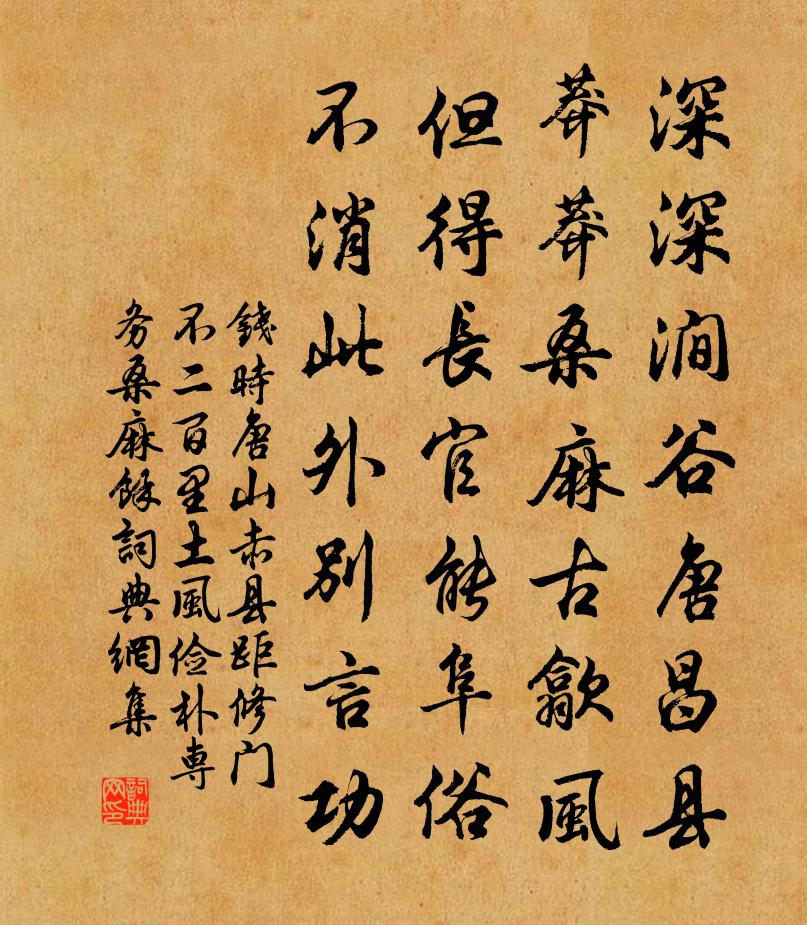 深深澗谷唐昌县
莽莽桑麻古歙風
但得長官能阜俗
不消此外别言功
錢時唐山赤县距修门
不二百里土風俭朴専
务桑麻餘詞典網集
詞典网印